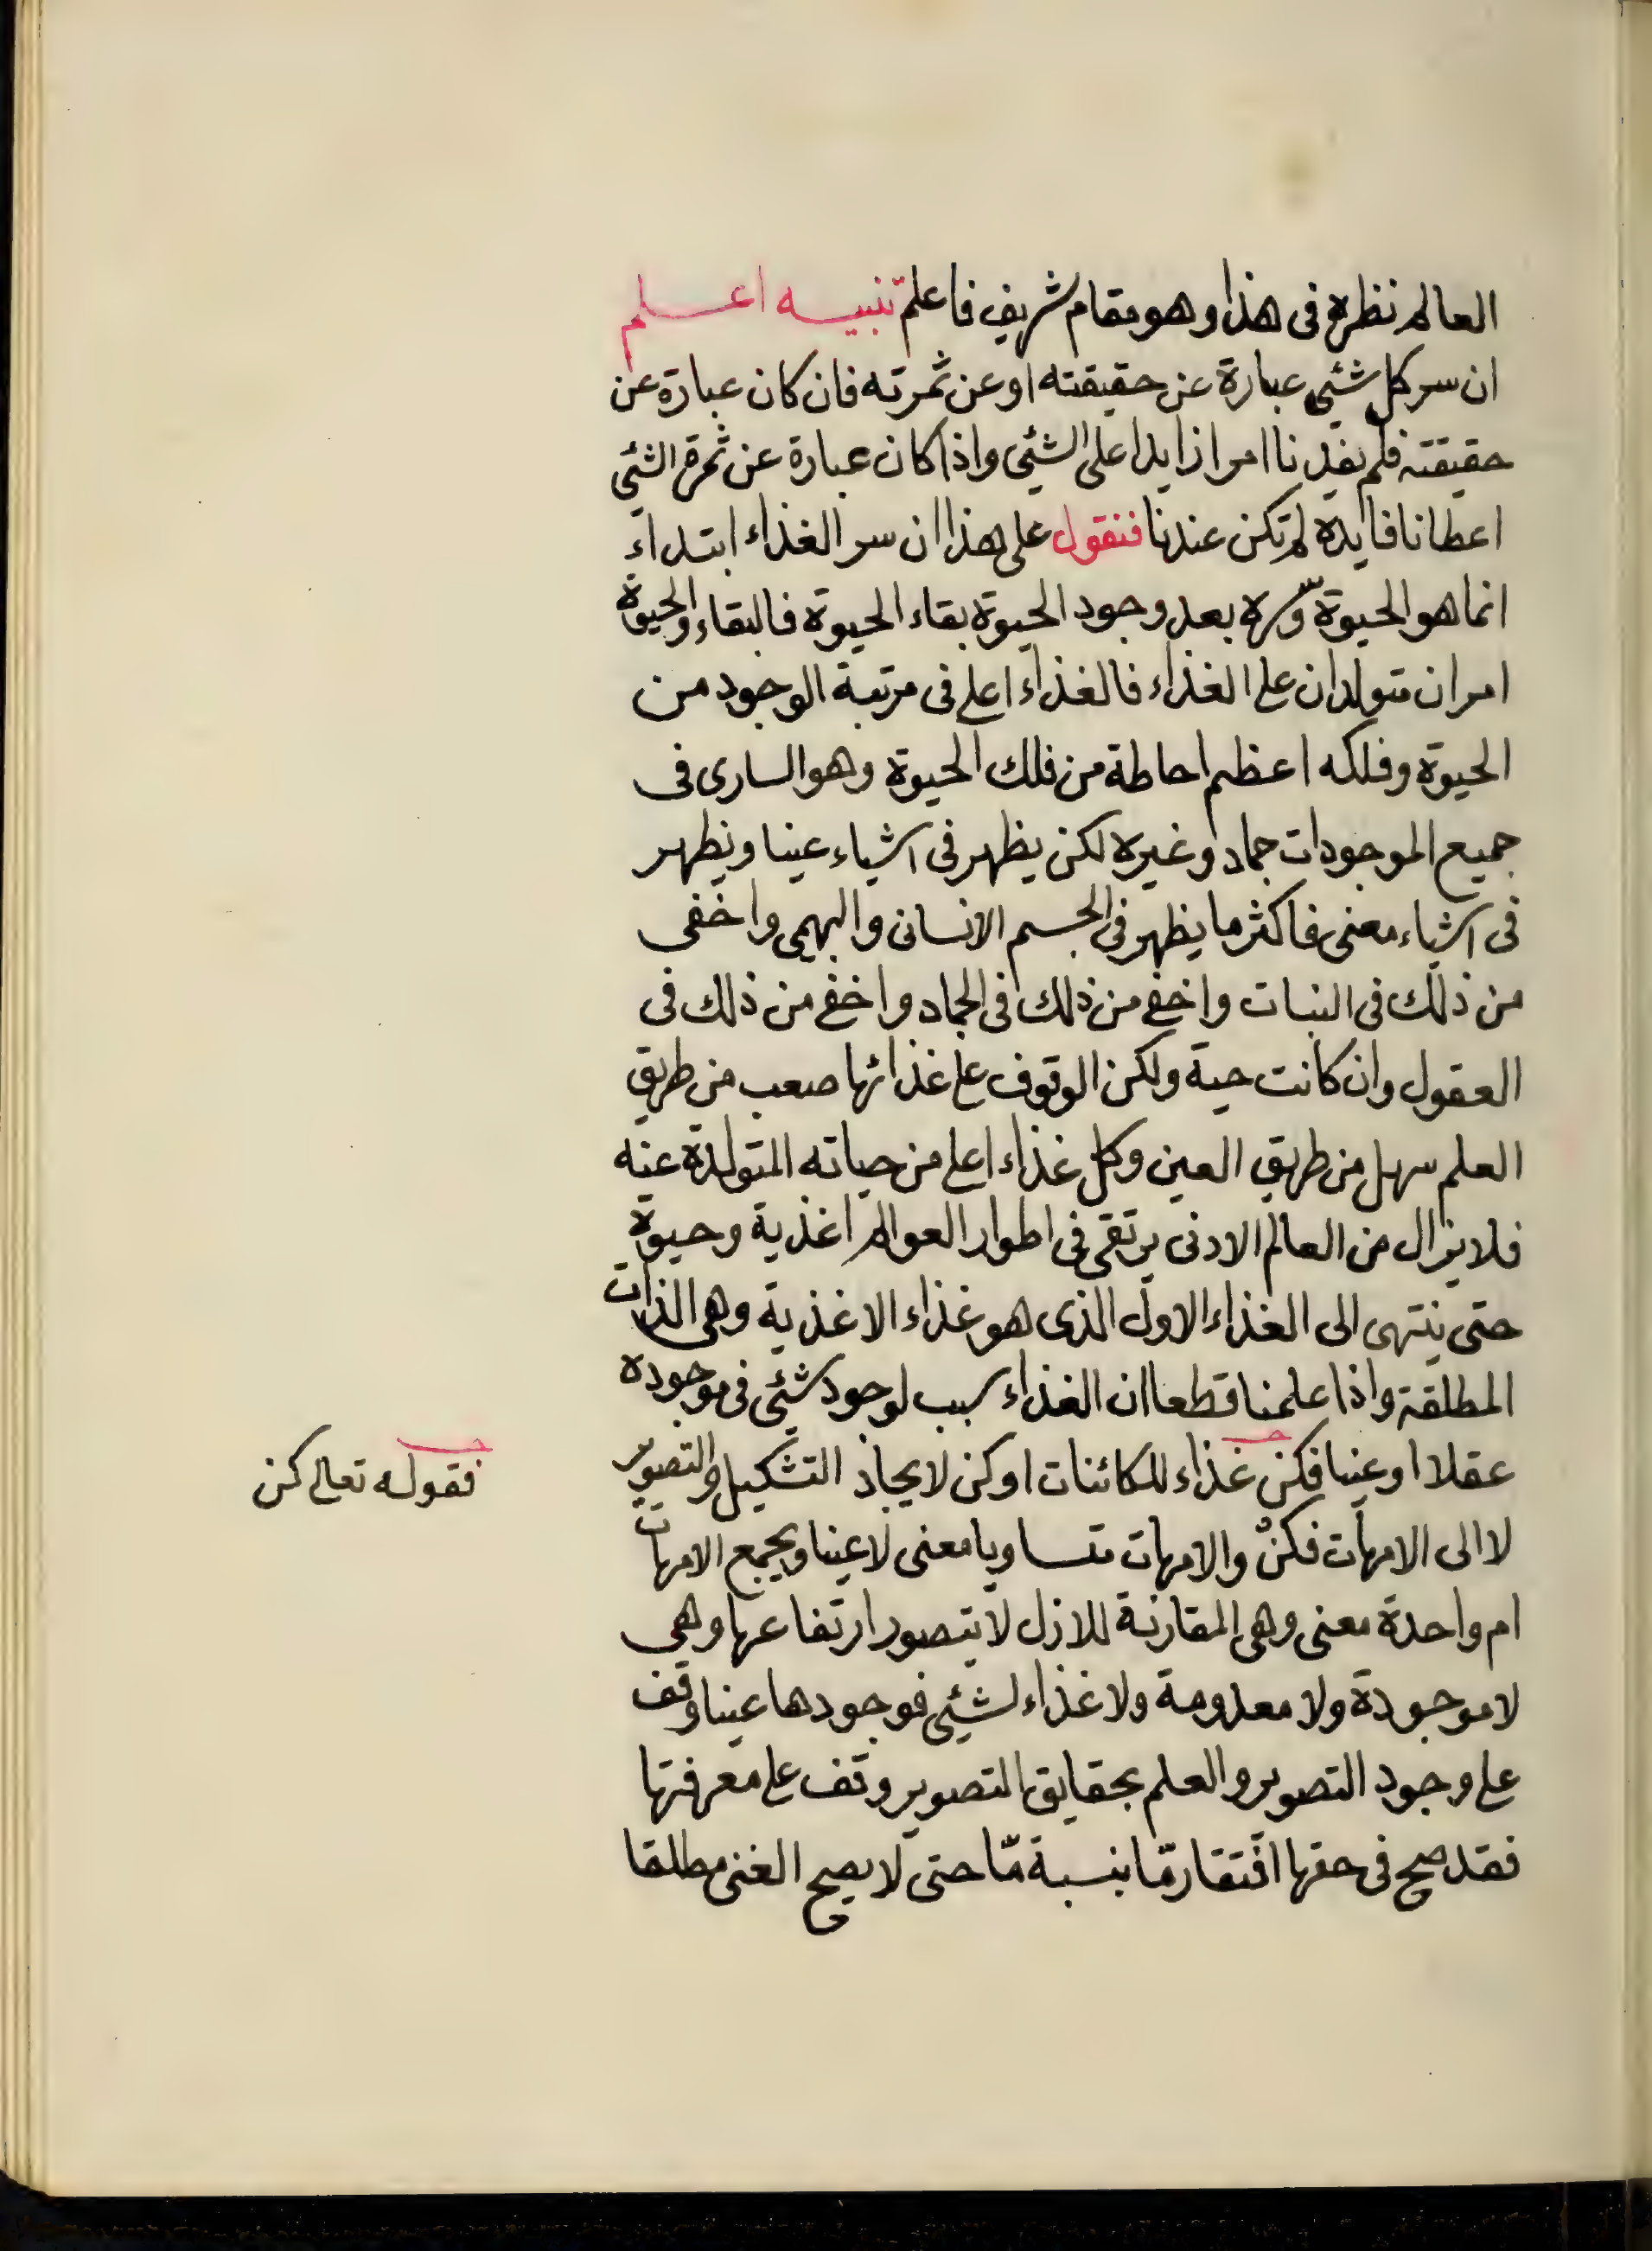 العالم نظره فى هذا وهو مقام شريف فاعلم تنبيه اعلم
ان سر كل شئي عبارة عن حقيقته او عن ثمرته فان كان عبارة عن
حقيقته فلم يفدنا امرا زايدا على الشئي واذا كان عبارة عن ثمرة الشئي
اعطانا فايدة لم تكن عندنا فنقول على هذا ان سر الغذاء ابتداء
انما هو الحيوة وسّره بعد وجود الحيوة بقاء الحيوة فالبقاء والحيوة
امران متولدان على الغذاء فالغذاء اعلى فى مرتبة الوجود من
الحيوة وفلكه اعظم احاطة من فلك الحيوة وهو السارى فى
جميع الموجودات جماد وغيره لكن يظهر فى اشياء عينا ويظهر
فى اشياء معنى فاكثر ما يظهر فى الجسم الانسانى والبهيمى واخفى
من ذلك فى النبات واخفى من ذلك فى الجماد واخفى من ذلك فى
العقول وان كانت حية ولكن الوقوف على غذائها صعب من طريق
العلم سهل من طريق العين وكل غذاء اعلى من حياته المتولدة عنه
فلا يزال من العالم الادنى يرتقى فى اطوار العوالم اغذية وحيوة
حتى ينتهى الى الغذاء الاول الذى هو غذاء الاغذية وهى الذات
المطلقة واذا علمنا قطعا ان الغذاء سبب لوجود شئي فى موجوده
عقلا او عينا فكن غذاء للكائنات او كن لايجاد التشكيل والتصوير
فقوله تعالى كن
لا الى الامهات فكن والامهات متساويا معنى لا عينا ويجمع الامهات
ام واحدة معنى وهى المقارنة للازل لا يتصور ارتفاعها وهى
لا موجودة ولا معدومة ولا غذاء لشئي فوجودها عينا وقف
على وجود التصوير والعلم بحقايق التصوير وقف على معرفتها
فقد صح فى حقها افتقار مّا بنسبة مّا حتى لا يصح الغنى مطلقا